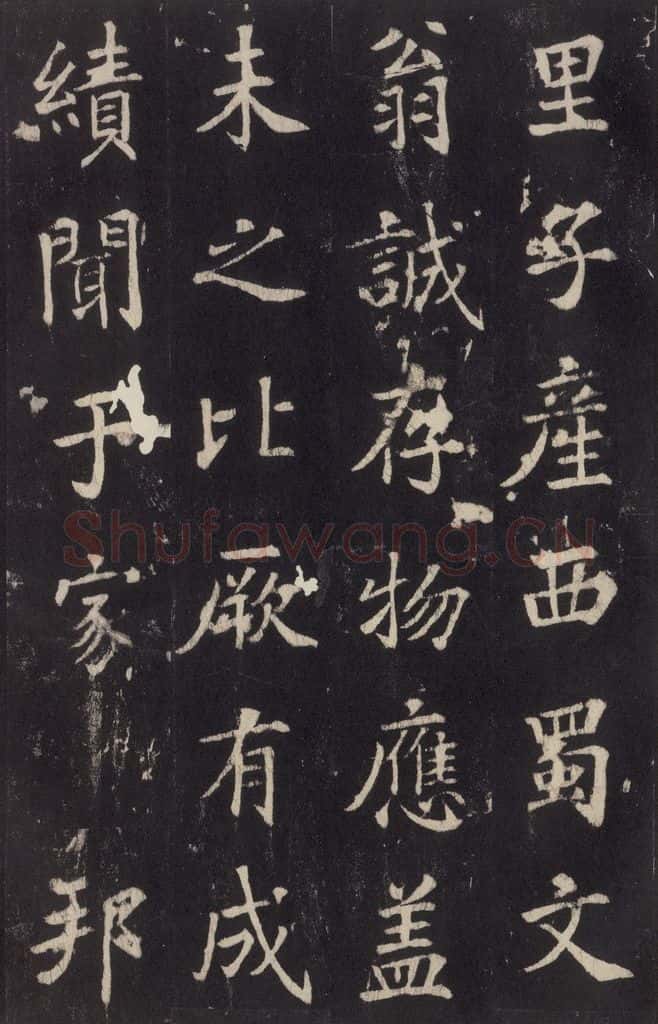 里子產西蜀文
翁誠存物應盖
未之比厥有成
績聞于家邦
Shufawang.CN